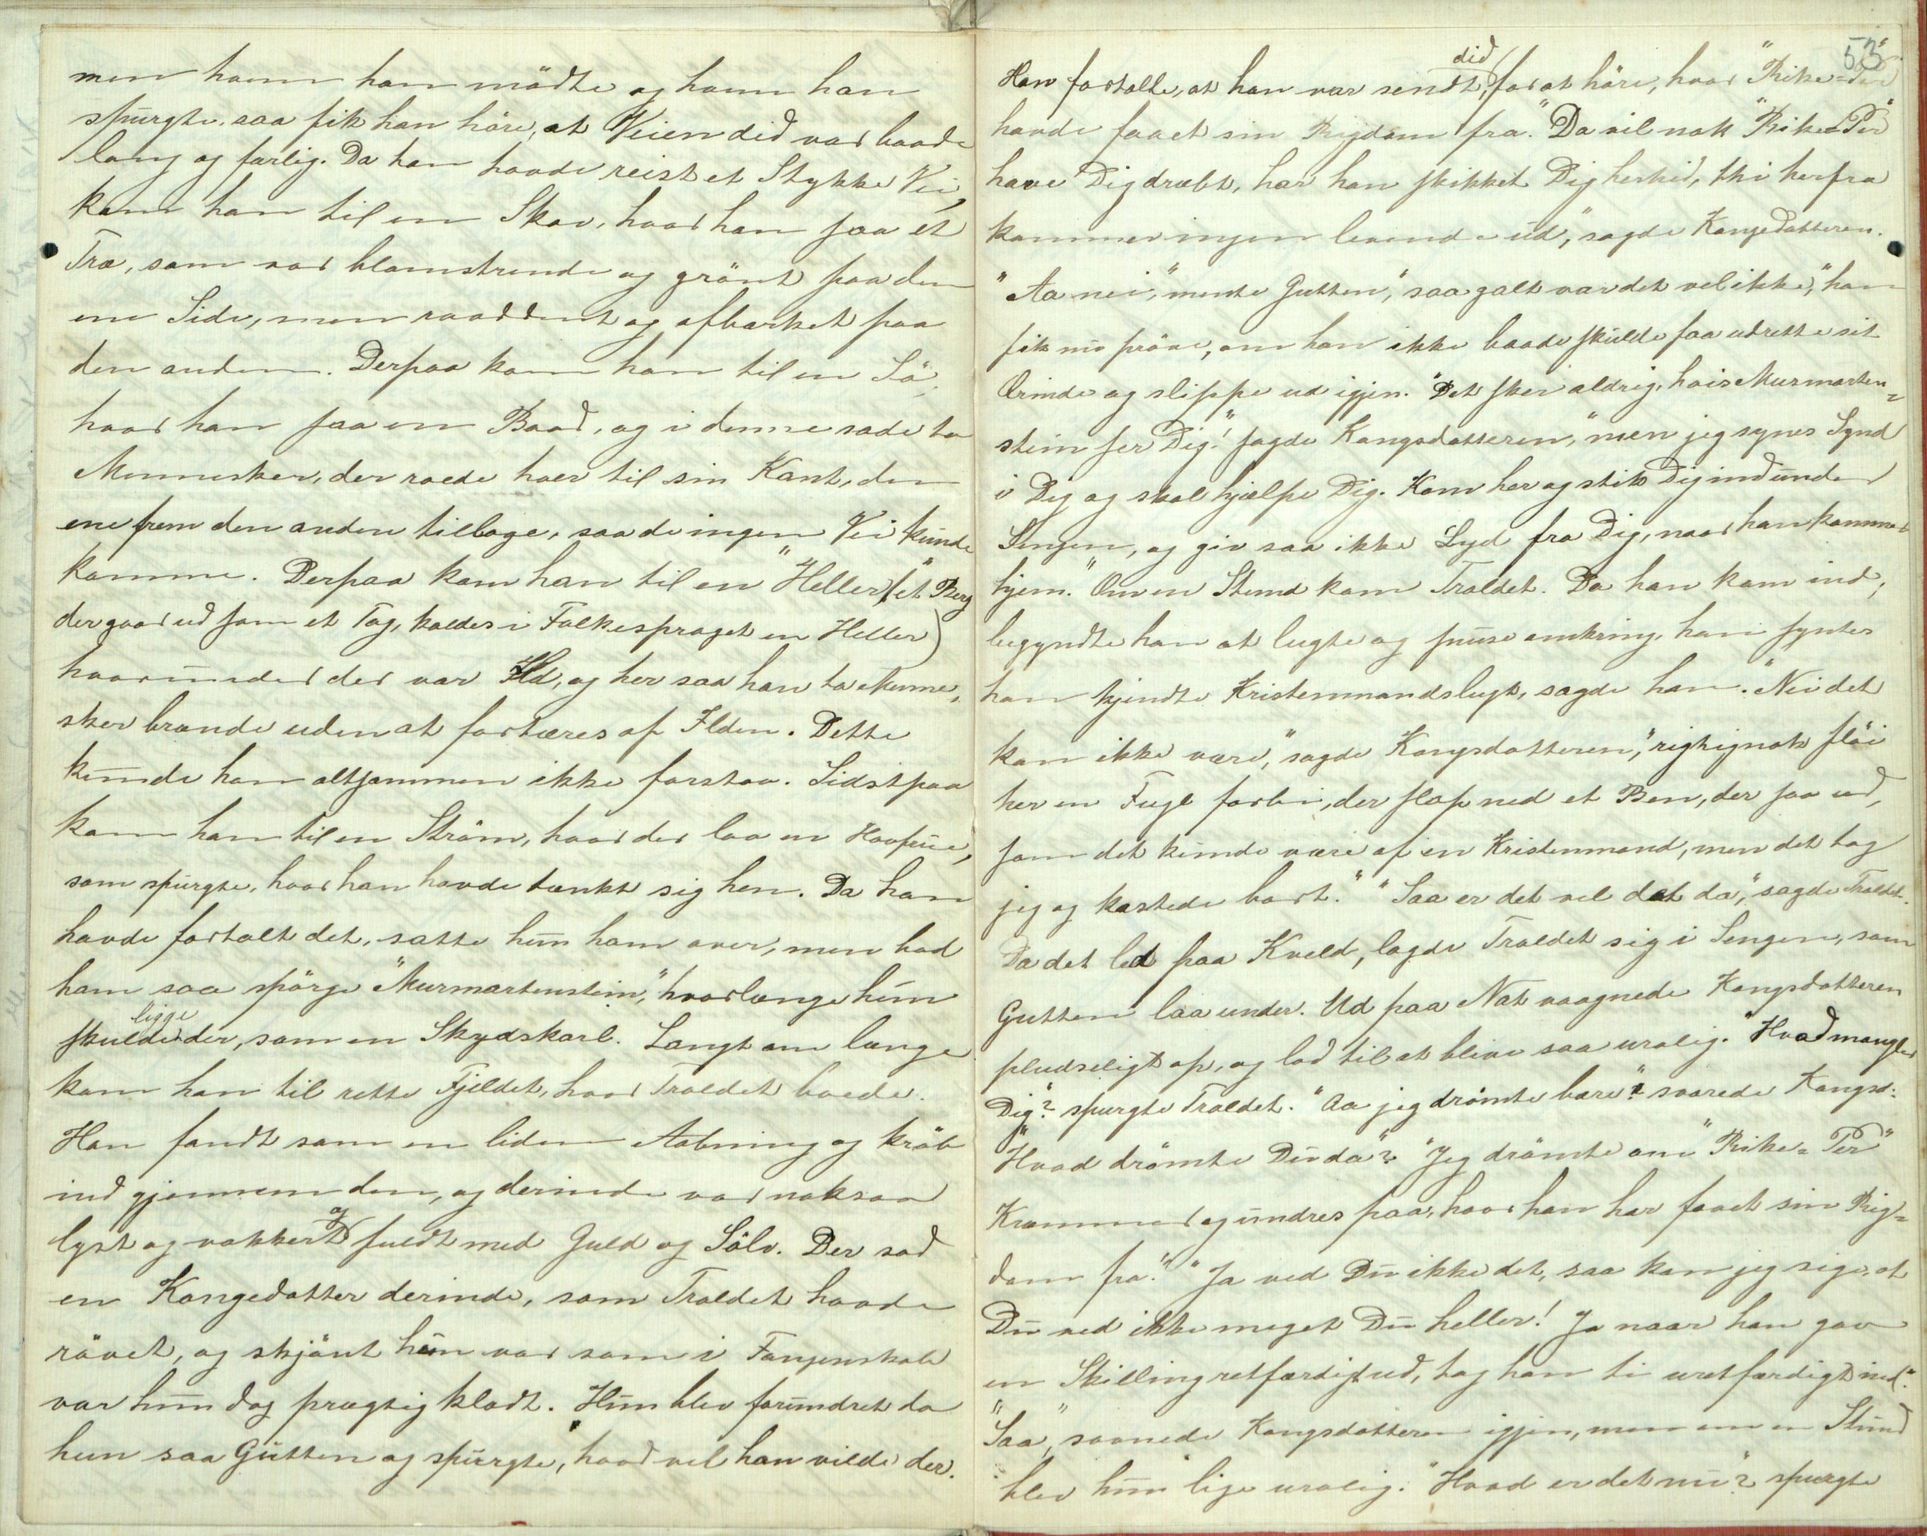 men hvem han mödte og hvem han
spurgte, saa fik han höre, at Veien did var baade
lang og farlig. Da han havde reist et Stykke Vei,
kom han til en Skov, hvor han saa et
Træ, som var blomstrende og grönt paa den
ene Side, men raaddent og afbarket paa
den anden. Derpaa kom han til en Sö,
hvor han saa en Baad, og i denne sade to
Mennesker, der roede hver til sin Kant, den
ene frem den anden tilbage, saa de ingen Vei kunde
komme. Derpaa kom han til en "Heller" (et Berg
der gaar ud som et Tag, kaldes i Folkesproget en Heller)
hvorunder der var Ild, og her saa han to Menne-
sker brænde uden at fortæres af Ilden. Dette
kunde han altsammen ikke forstaa. Sidstpaa
kom han til en Ström, hvor der laa en Havfrue,
som spurgte, hvor han havde tænkt sig hen. Da han
havde fortalt det, satte hun ham over, men bad
ham saa spörge "Murmartenstein", hvorlænge hun
skulde ligge der, som en Skydskarl. Langt om længe
kom han til rette Fjeldet, hvor Troldet boede.
Han fandt som en liden Aabning og kröb
ind gjennem den, og derinde var noksaa
lyst og vakkert og fuldt med Guld og Sölv. Der sad
en Kongedatter derinde, som Troldet havde
rövet, og skjönt hun var som i Fangenskab
var hun dog prægtig klædt. Hun blev forundret da
hun saa Gutten og spurgte, hvad vel han vilde der.
53
Han fortalte, at han var sendt did, for at höre, hvor "Rike-Per"
havde faaet sin Rigdom fra. "Da vil nok "Rike-Per"
have Dig dræbt, har han skikket Dig herhid, thi herfra
kommer ingen levende ud," sagde Kongedatteren.
"Aa nei," mente Gutten, "saa galt var det vel ikke," han
fik nu pröve, om han ikke baade skulde faa udrette sit
Ærinde og slippe ud igjen. "Det sker aldrig, hvis Murmarten-
stein ser Dig!" sagde Kongsdatteren, "men jeg synes Synd
i Dig og skal hjælpe Dig. Kom her og stik Dig ind under
Sengen, og giv saa ikke Lyd fra Dig, naar han kommer
hjem." Om en Stund kom Troldet. Da han kom ind,
begyndte han at lugte og snuse omkring, han syntes
han kjendte Kristenmandslugt, sagde han. "Nei det
kan ikke være," sagde Kongsdatteren, "rigtignok flöi
her en Fugl forbi, der slap ned et Ben, der saa ud,
som det kunde være af en Kristenmand, men det tog
jeg og kastede bort." "Saa er det vel det da," sagde Troldet.
Da det led paa Kveld, lagde Troldet sig i Sengen, som
Gutten laa under. Ud paa Nat vaagnede Kongsdatteren
pludseligt op, og lod til at blive saa urolig. "Hvad mangler
Dig?" spurgte Troldet. "Aa jeg drömte bare" svarede Kongsd.
"Hvad drömte Du da"? "Jeg drömte om "Rike-Per"
Kræmmer og undres paa, hvor han har faaet sin Rig-
dom fra." "Ja ved Du ikke det, saa kan jeg sige, at
Du ved ikke meget Du heller! Jo naar han gav
en Skilling retfærdigt ud, tog han ti uretfærdigt ind."
"Saa," sovnede Kongsdatteren igjen, men om en Stund
blev hun lige urolig. "Hvad er det nu"? spurgte